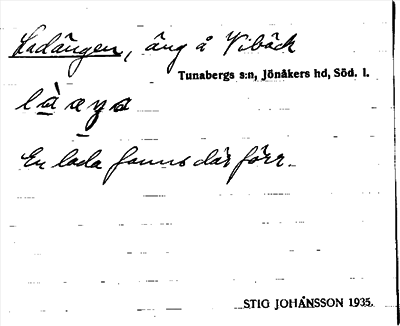 Ladängen, äng å Vibäck
Tunabergs s:n, Jönåkers hd, Söd. l.
En lada fanns där förr.
STIG JOHANSSON 1935.